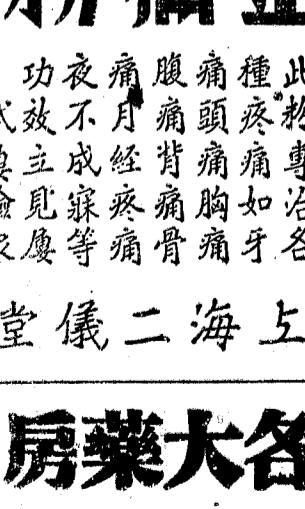 此粉專治各
種疼痛如牙
痛頭痛胸痛
腹痛背痛骨
痛月經疼痛
夜不成寐等
功效立見屢
上海二儀堂
各大藥房